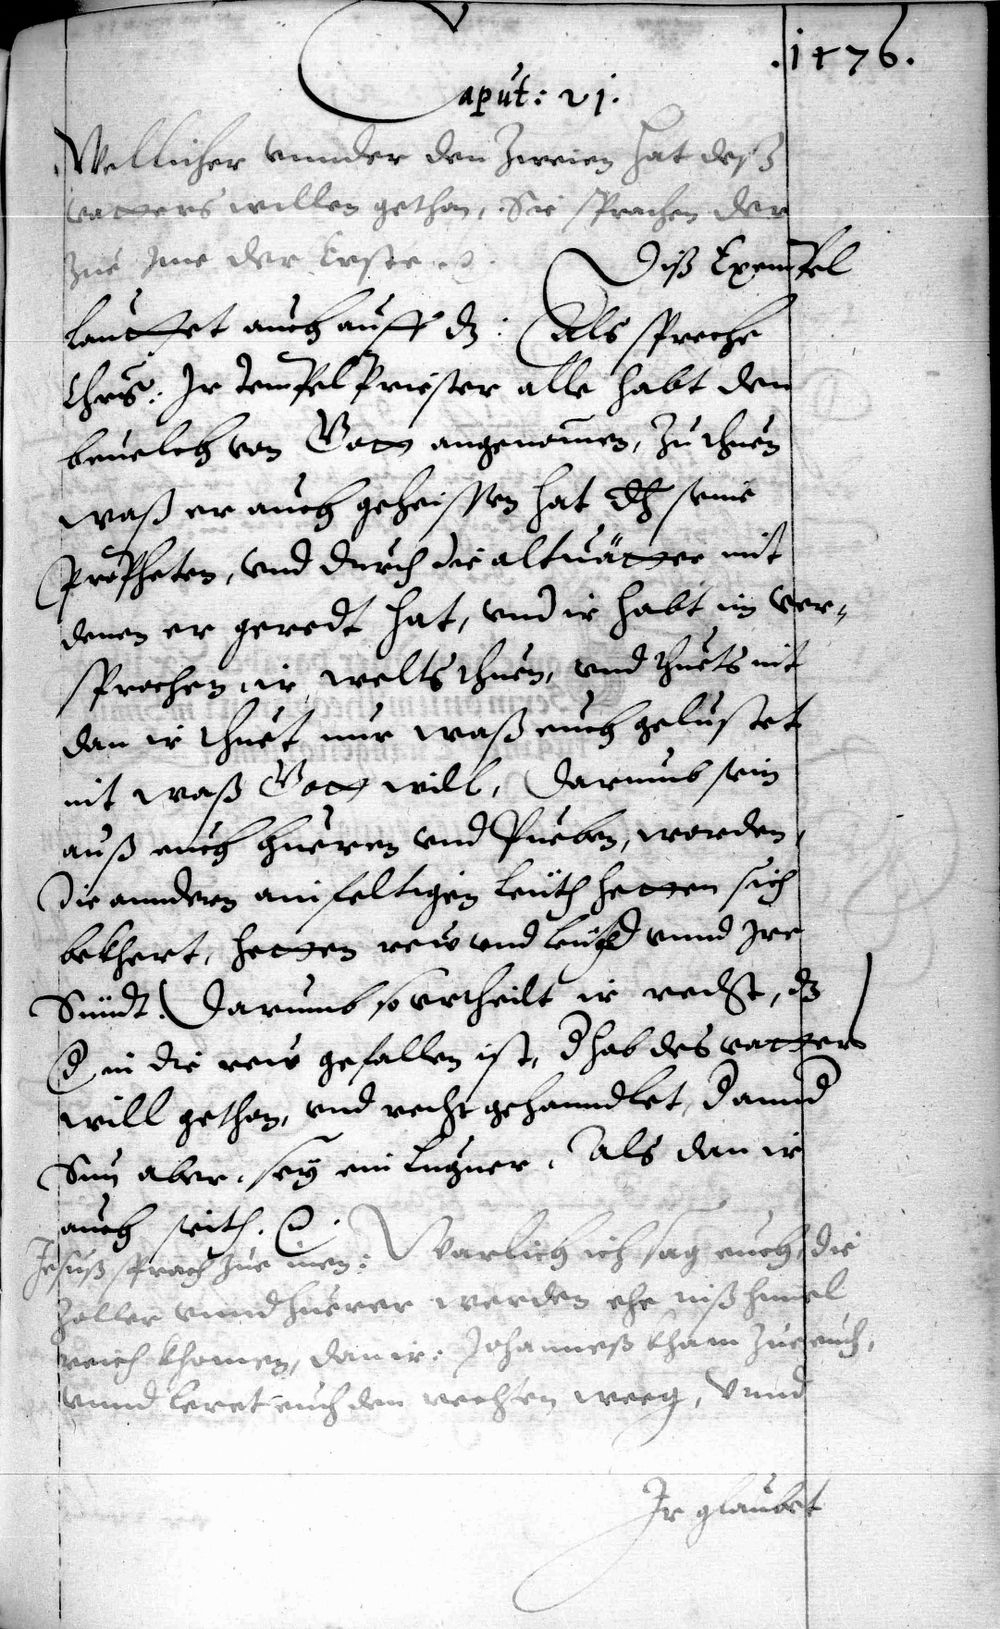 .1476.
Caput: 21.
Wellicher vnnder den Zweien hat deß
vatters willen gethon, Sie sprachen
Zue Ime der Erste.
Diß Exempel
lauttet auch auff dz: Als spreche
Chrs: Ir tempel Priester alle habt den
beuelch von Gott angenomen, Zu thuen
waß er euch geheissen hat dh seine
Propheten, vnd durch die altuätter mit
denen er geredt hat, vnd ir habt im ver„
sprochen, ir welts thuen, vnd thuets nit
dan ir thuet nur waß euch gelustet
nit waß Gott will, Darumb sein
auß euch hueren vnd Pueben, worden,
Die anndern ainfeltigen leuth hetten sich
bekhert, hetten rew vnd leid vmb Ire
Sündt. Darumb so vrtheilt ir recht, dz
d, in die rew gefallen ist, d hab des vatters
will gethon, vnd recht gehanndlet,
Sun aber, sey ein lugner, Als dan ir
auch seith.
Jesuß sprach Zue inen: Warlich ich sag euch, die
Zoller vnnd huerer werden ehe inß himel
reich khomen, dan ir: Johanneß kham Zue euch,
vnnd leret euch den rechten weeg, Vnnd
Ir glaubet